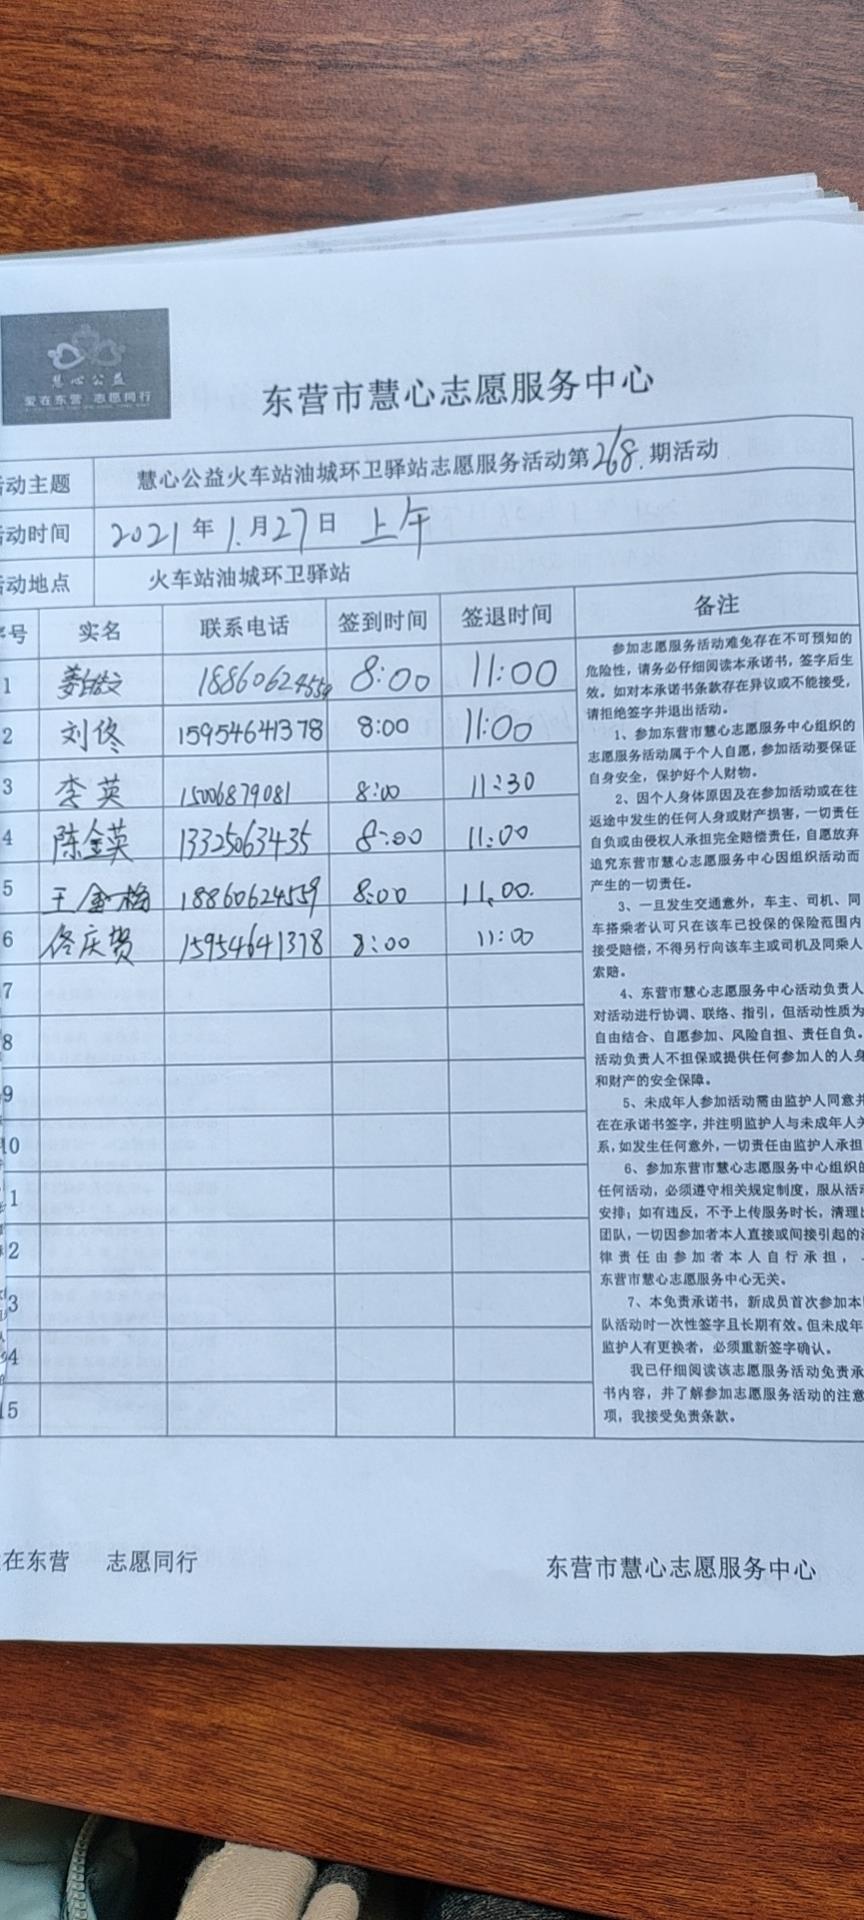 慧心公益
爱在东营 志愿同行
东营市慧心志愿服务中心
活动主题 慧心公益火车站油城环卫驿站志愿服务活动第268.期活动
活动时间 2021年1.月27日 上午
活动地点 火车站油城环卫驿站
序号 实名 联系电话 签到时间 签退时间 备注
1 18860624559 8:00 11:00
2 刘佟 15954641378 8:00 11:00
3 李英 15006879081 8:00 11:30
4 陈金英 13325063435 8:00 11:00
5 王金梅 18860624559 8:00 11:00.
6 佟庆贺 15954641378 8:00 11:00
7
8
9
10
1
2
3
4
15
参加志愿服务活动难免存在不可预知的
危险性，请务必仔细阅读本承诺书，签字后生
效。如对本承诺书条款存在异议或不能接受，
请拒绝签字并退出活动。
1、参加东营市慧心志愿服务中心组织的
志愿服务活动属于个人自愿，参加活动要保证
自身安全，保护好个人财物。
2、因个人身体原因及在参加活动或在往
返途中发生的任何人身或财产损害，一切责任
自负或由侵权人承担完全赔偿责任，自愿放弃
追究东营市慧心志愿服务中心因组织活动而
产生的一切责任。
3、一旦发生交通意外，车主、司机、同
车搭乘者认可只在该车已投保的保险范围内
接受赔偿，不得另行向该车主或司机及同乘人
索赔。
4、东营市慧心志愿服务中心活动负责人
对活动进行协调、联络、指引，但活动性质为
自由结合、自愿参加、风险自担、责任自负。
活动负责人不担保或提供任何参加人的人身
和财产的安全保障。
5、未成年人参加活动需由监护人同意并
在在承诺书签字，并注明监护人与未成年人关
系，如发生任何意外，一切责任由监护人承担
6、参加东营市慧心志愿服务中心组织的
任何活动，必须遵守相关规定制度，服从活动
安排；如有违反，不予上传服务时长，清理出
团队，一切因参加者本人直接或间接引起的法
律责任由参加者本人自行承担，
东营市慧心志愿服务中心无关。
7、本免责承诺书，新成员首次参加本团
队活动时一次性签字且长期有效。但未成年
监护人有更换者，必须重新签字确认。
我已仔细阅读该志愿服务活动免责承
书内容，并了解参加志愿服务活动的注意
项，我接受免责条款。
在东营 志愿同行
东营市慧心志愿服务中心